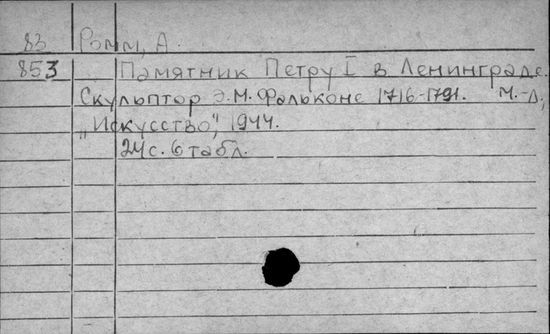 83 Ромм, А.
853 Памятник Петру I в Ленинграде.
Скульптор Э.М. Фальконе 1716-1791. М.-Л.,
„Искусство", 1944.
24с. 6 табл.